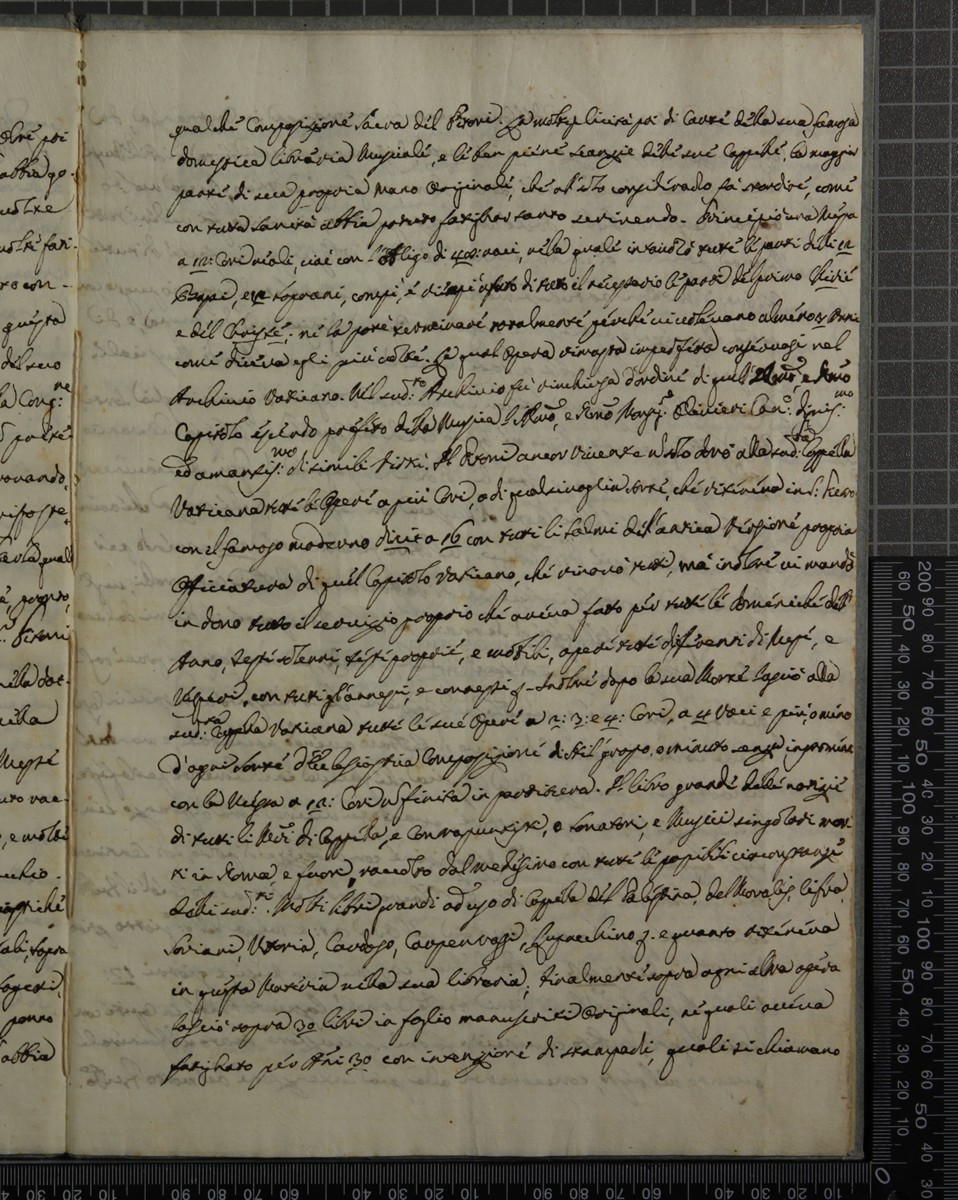 qualche Composizione Sacra del Pitoni. La molteplicità poi di Carte della sua famosa
domestica libraria Musicale, e le ben piene scanzie delle sue Cappelle, la maggior
parte di sua propria mano Originali, che al solo considerarlo fà stordire, come
con tutta sanità abbia potuto fatighar tanto scrivendo. Principiò una Messa
a 12: Cori reali, cioè con l'obligo di voci, nella quale intavolò tutte le parti delli 12
Bassi, e 12 soprani, compì, è riempì affatto di tutto il necessario le parti del primo Chirie
e del Christe: nè la potè terminare totalmente perchè ci volevano almeno Anni
come diceva egli più volte. La qual Opera rimasta imperfetta conservasi nel
Archivio Vaticano. Nel sud:to Archivio fù rinchiusa d'ordine di quell' Illmo, e Rmo
Capitolo essendo prefetto della Musica l'Illmo, e Rmo Monsig.r Olivieri Can:co degnis:mo
ed amantis:mo di simile Virtù. Il Pitoni ancor vivente non solo donò alla sud:ta Cappella
Vaticana tutte le Opere a più Cori, o di qualsivoglia sorte, che riteneva in S: Pietro
con el famoso moderno dixit a 16 con tutti li salmi dell'antica Versione propria
Officiatura di quel Capitolo Vaticano, che rinovò tutti, mà inoltre vi mandò
in dono tutto il servizio proprio che aveva fatto per tutte le Domeniche dell'
Anno, feste solenni, feste proprie, e mobili, a parti tutte differenti di Messe, e
Vesperi, con tutti gl'annessi, e connessi &. Inoltre dopo la sua Morte lasciò alla
sud:ta Cappella Vaticana tutte le sue Opere a 2: 3: e 4: Cori, a 4 Voci e più, o meno
d'ogni sorte d'Ecclesiastica Composizione di Stil grosso, o minuto senza
con la Messa a 12: Cori non finita in partitura. Il libro grande delle notizie
di tutti li Mri di Cappella, e Contrapuntisti, e sonatori, e Musici singolari mor-
ti in Roma, e fuori, raccolto dal medesimo con tutte le possibili circonstanze
delli sud:ti. Molti libri grandi ad uso di Cappella del Palestrina, del Morales,
Soriani, Vitoria, Cardoso, Carpentrasso, Lupacchino &. e quanto riteneva
in questa Materia nella sua libraria; finalmente sopra ogni altra opera
lasciò sopra 30 libri in foglio manuscritti Originali, ne quali aveva
fatighato per Anni 30 con intenzione di stamparli, quali si chiamano